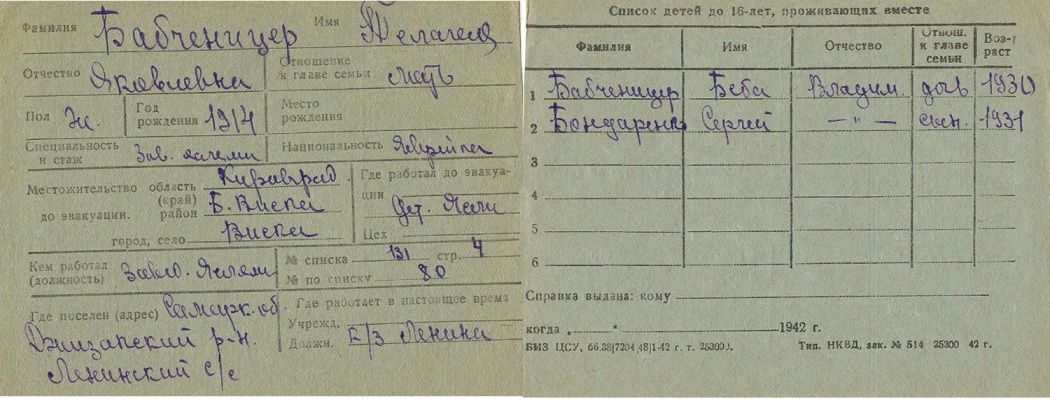 Фамилия Бабченицер Имя Пелагея
Отчество Яковлевна Отношение к главе семьи мать
Пол Ж. Год рождения 1914 Место рождения
Специальность и стаж Зав. яслями Национальность Еврейка
Местожительство до эвакуации. область (край) Кировград.
район Б. Виски
город, село Виска
Где работал до эвакуации Дет. Ясли
Цех
Кем работал (должность) Завед. Яслями
№ списка 131 стр. 4
№ по списку 80
Где поселен (адрес) Самарк. об.
Джизакский р-н.
Ленинский с/с
Где работает в настоящее время
Учрежд.
Должн. к/з Ленина
Список детей до 16-лет, проживающих вместе
Фамилия Имя Отчество Отнош. к главе семьи Возраст
1 Бабченицер Беба Владим. дочь 1930
2 Бондаренко Сергей — " — сын. 1931
3
4
5
6
Справка выдана: кому
когда „ “ 1942 г.
БИЗ ЦСУ, Тип. НКВД, зак. № 514 25300 42 г.